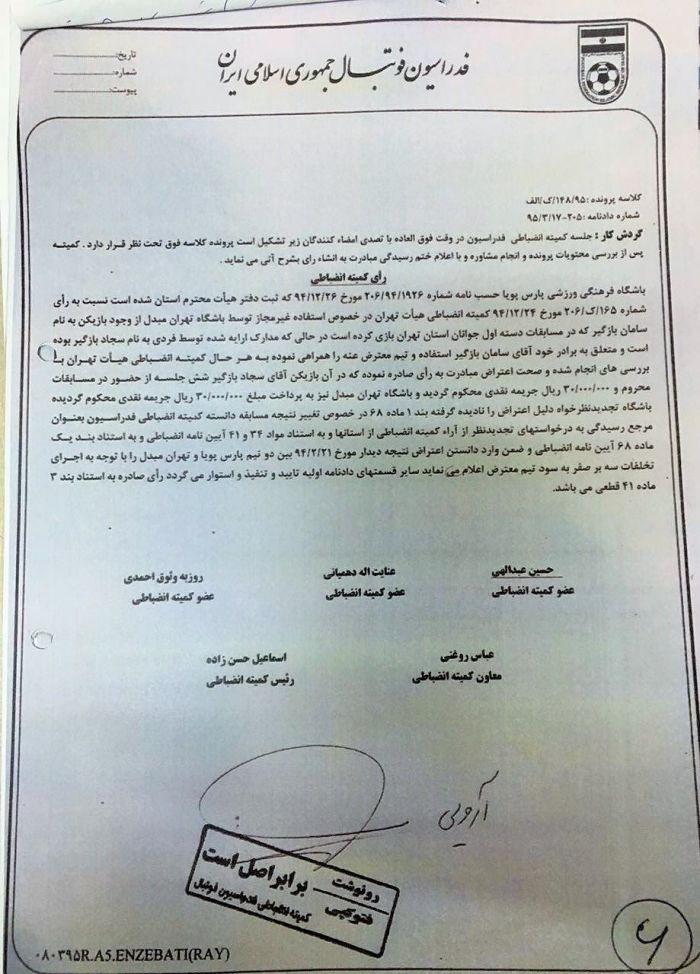 فدراسیون فوتبال جمهوری اسلامی ایران
تاریخ:
شماره:
پیوست:
کلاسه پرونده :۱۴۸/۹۵/ک/الف
شماره دادنامه :۲۰۵-۹۵/۳/۱۷
گردش کار : جلسه کمیته انضباطی فدراسیون در وقت فوق العاده با تصدی امضاء کنندگان زیر تشکیل است پرونده کلاسه فوق تحت نظر قرار دارد . کمیته
پس از بررسی محتویات پرونده و انجام مشاوره و با اعلام ختم رسیدگی مبادرت به انشاء رای بشرح آتی می نماید .
رأی کمیته انضباطی
باشگاه فرهنگی ورزشی پارس پویا حسب نامه شماره ۲۰۶/۹۴/۱۹۲۶ مورخ ۹۴/۱۲/۲۶ که ثبت دفتر هیأت محترم استان شده است نسبت به رأی
شماره ۱۶۵/ک/۲۰۶ مورخ ۹۴/۱۲/۲۴ کمیته انضباطی هیأت تهران در خصوص استفاده غیرمجاز توسط باشگاه تهران مبدل از وجود بازیکن به نام
سامان بازگیر که در مسابقات دسته اول جوانان استان تهران بازی کرده است در حالی که مدارک ارایه شده توسط فردی به نام سجاد بازگیر بوده
است و متعلق به برادر خود آقای سامان بازگیر استفاده و تیم معترض عنه را همراهی نموده به هر حال کمیته انضباطی هیأت تهران با
بررسی های انجام شده و صحت اعتراض مبادرت به رأی صادره نموده که در آن بازیکن آقای سجاد بازگیر شش جلسه از حضور در مسابقات
محروم و ۳۰/۰۰۰/۰۰۰ ریال جریمه نقدی محکوم گردید و باشگاه تهران مبدل نیز به پرداخت مبلغ ۳۰/۰۰۰/۰۰۰ ریال جریمه نقدی محکوم گردیده
باشگاه تجدیدنظرخواه دلیل اعتراض را نادیده گرفته بند ۱ ماده ۶۸ در خصوص تغییر نتیجه مسابقه دانسته کمیته انضباطی فدراسیون بعنوان
مرجع رسیدگی به درخواستهای تجدیدنظر از آراء کمیته انضباطی از استانها و به استناد مواد ۳۴ و ۴۱ آیین نامه انضباطی و به استناد بند یک
ماده ۶۸ آیین نامه انضباطی و ضمن وارد دانستن اعتراض نتیجه دیدار مورخ ۹۴/۲/۲۱ بین دو تیم پارس پویا و تهران مبدل را با توجه به اجرای
تخلفات سه بر صفر به سود تیم معترض اعلام می نماید سایر قسمتهای دادنامه اولیه تایید و تنفیذ و استوار می گردد رأی صادره به استناد بند ۳
ماده ۴۱ قطعی می باشد.
حسین عبدالهی عنایت اله دهمیانی روزبه وثوق احمدی
عضو کمیته انضباطی عضو کمیته انضباطی عضو کمیته انضباطی
عباس روغنی اسماعیل حسن زاده
معاون کمیته انضباطی رئیس کمیته انضباطی
رونوشت
فتوکپی
برابر اصل است
کمیته انضباطی فدراسیون فوتبال
۰۸۰۳۹۵R.A5.ENZEBATI(RAY)